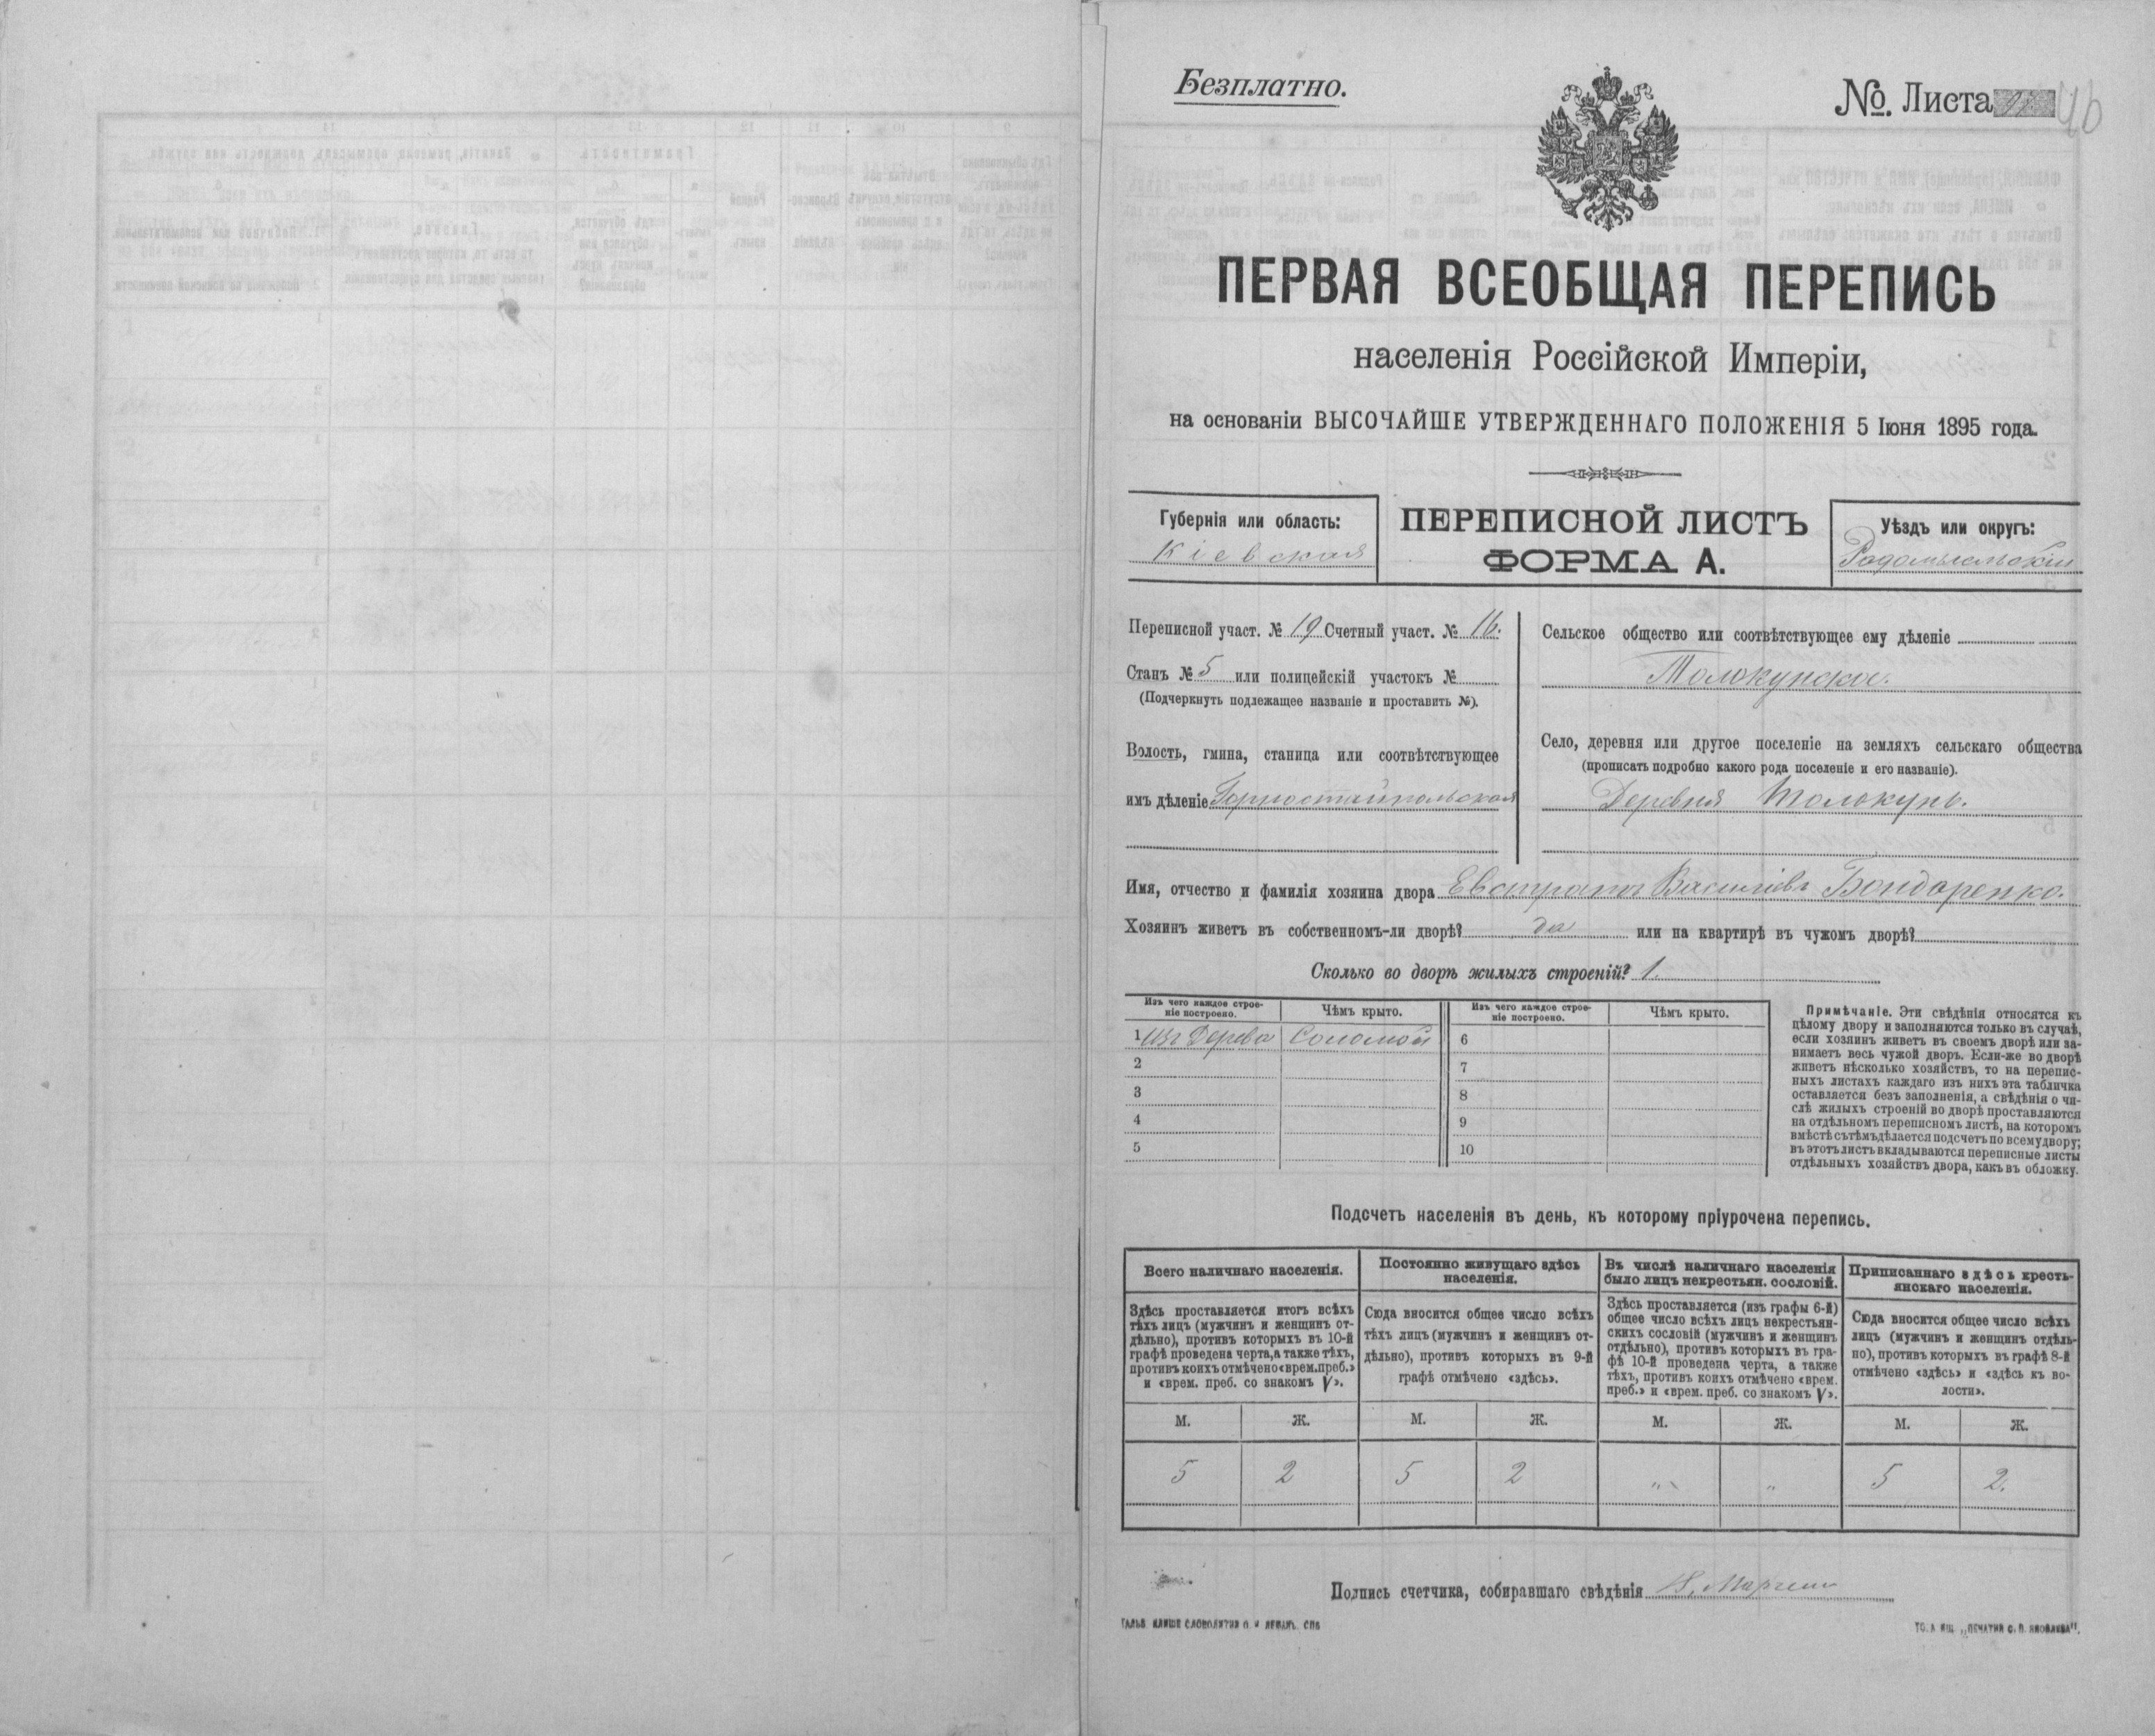 Безплатно.
№ Листа 46
ПЕРВАЯ ВСЕОБЩАЯ ПЕРЕПИСЬ
населенія Россійской Имперіи,
на основаніи ВЫСОЧАЙШЕ УТВЕРЖДЕННАГО ПОЛОЖЕНІЯ 5 Іюня 1895 года.
Губернія или область:
Кіевская
ПЕРЕПИСНОЙ ЛИСТЪ
ФОРМА А.
Уѣздъ или округъ:
Радомысльскій
Переписной участ. № 19 Счетный участ. № 16.
Станъ № 5 или полицейскій участокъ №
(Подчеркнуть подлежащее названіе и проставить №).
Волость, гмина, станица или соотвѣтствующее
имъ дѣленіе Горностайпольская
Сельское общество или соотвѣтствующее ему дѣленіе
Толокунское.
Село, деревня или другое поселеніе на земляхъ сельскаго общества
(прописать подробно какого рода поселеніе и его названіе).
Деревня Толокунь.
Имя, отчество и фамилія хозяина двора Евстратъ Василіевъ Бондаренко.
Хозяинъ живетъ въ собственномъ-ли дворѣ? да или на квартирѣ въ чужомъ дворѣ?
Сколько во дворѣ жилыхъ строеній? 1.
Изъ чего каждое строе-
ніе построено.
Чѣмъ крыто.
Изъ чего каждое строе-
ніе построено.
Чѣмъ крыто.
1 Изъ Дерева Соломой 6
2 7
3 8
4 9
5 10
Примѣчаніе. Эти свѣдѣнія относятся къ
цѣлому двору и заполняются только въ случаѣ,
если хозяинъ живетъ въ своемъ дворѣ или за-
нимаетъ весь чужой дворъ. Если-же во дворѣ
живетъ нѣсколько хозяйствъ, то на перепис-
ныхъ листахъ каждаго изъ нихъ эта табличка
оставляется безъ заполненія, а свѣдѣнія о чи-
слѣ жилыхъ строеній во дворѣ проставляются
на отдѣльномъ переписномъ листѣ, на которомъ
вмѣстѣ съ тѣмъ дѣлается подсчетъ по всему двору;
въ этотъ листъ вкладываются переписные листы
отдѣльныхъ хозяйствъ двора, какъ въ обложку.
Подсчетъ населенія въ день, къ которому пріурочена перепись.
Всего наличнаго населенія.
Здѣсь проставляется итогъ всѣхъ
тѣхъ лицъ (мужчинъ и женщинъ от-
дѣльно), противъ которыхъ въ 10-й
графѣ проведена черта, а также тѣхъ,
противъ коихъ отмѣчено «врем. преб.»
и «врем. преб. со знакомъ V».
Постоянно живущаго здѣсь
населенія.
Сюда вносится общее число всѣхъ
тѣхъ лицъ (мужчинъ и женщинъ от-
дѣльно), противъ которыхъ въ 9-й
графѣ отмѣчено «здѣсь».
Въ числѣ наличнаго населенія
было лицъ некрестьян. сословій.
Здѣсь проставляется (изъ графы 6-й)
общее число всѣхъ лицъ некрестьян-
скихъ сословій (мужчинъ и женщинъ
отдѣльно), противъ которыхъ въ гра-
фѣ 10-й проведена черта, а также
тѣхъ, противъ коихъ отмѣчено «врем.
преб.» и «врем. преб. со знакомъ V».
Приписаннаго здѣсь кресть-
янскаго населенія.
Сюда вносится общее число всѣхъ
лицъ (мужчинъ и женщинъ отдѣль-
но), противъ которыхъ въ графѣ 8-й
отмѣчено «здѣсь» и «здѣсь къ во-
лости».
М. Ж. М. Ж. М. Ж. М. Ж.
5 2 5 2 „ „ 5 2.
Подпись счетчика, собиравшаго свѣдѣнія